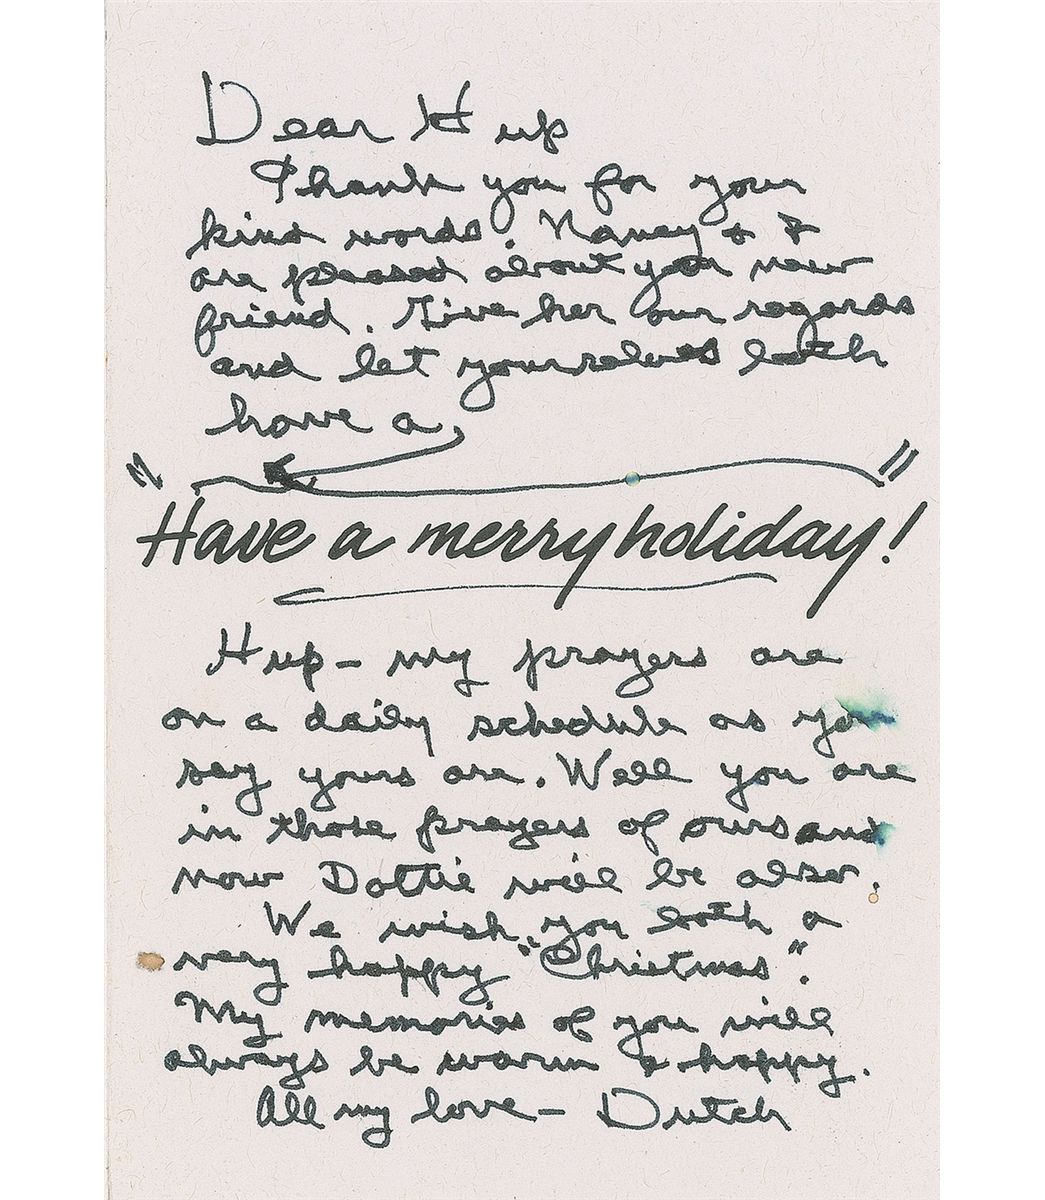 Dear Hup
Thank you for your
kind words. Nancy & I
are pleased about your new
friend. Give her our regards
and let yourselves both
have a
"Have a merry holiday!"
Hup – my prayers are
on a daily schedule as you
say yours are. Well you are
in those prayers of ours and
now Dottie will be also.
We wish you both a
very happy "Christmas".
My memories of you will
always be warm & happy.
All my love – Dutch